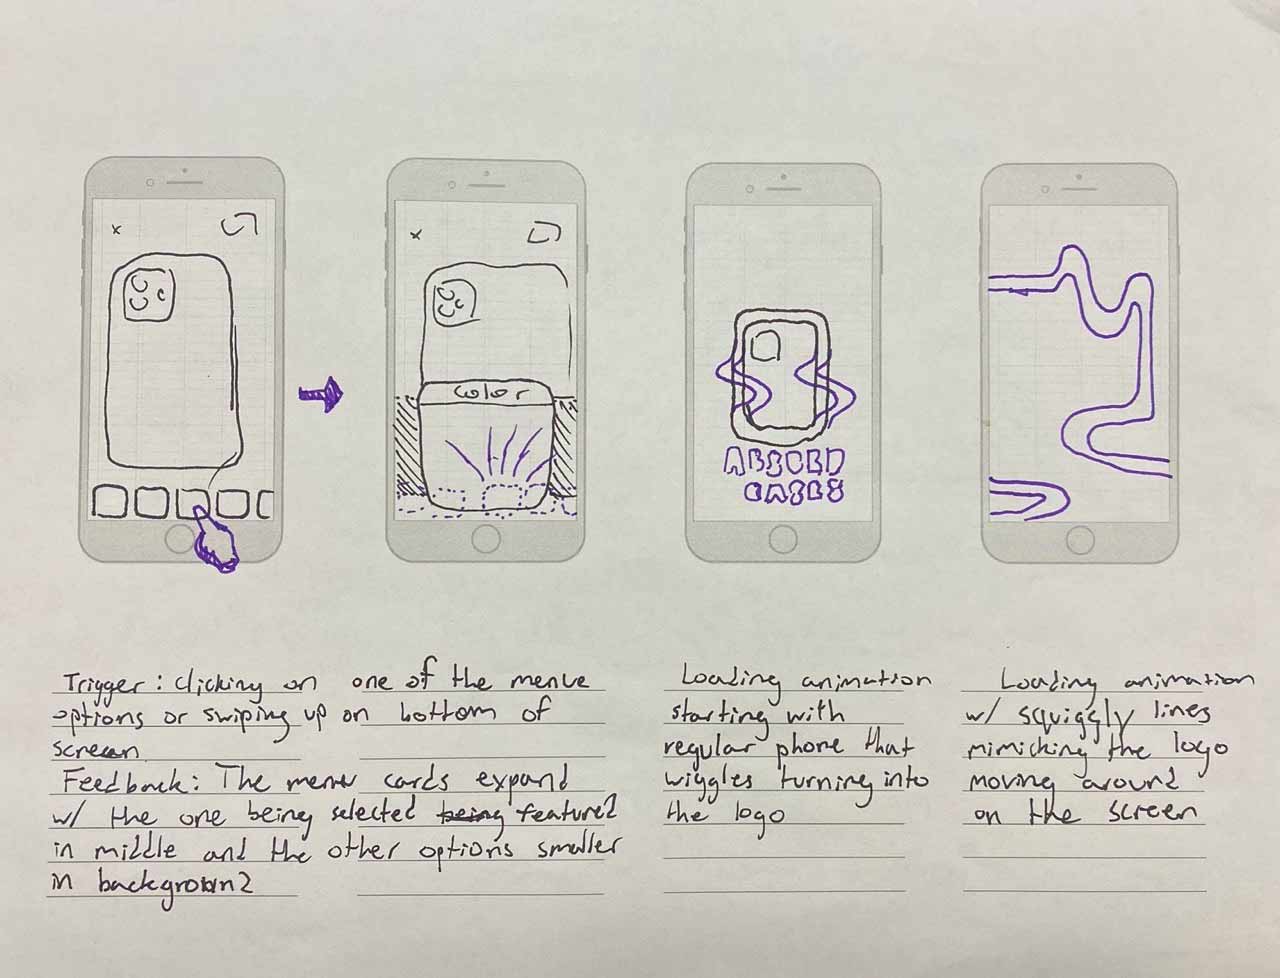 x
x
Color
CASES
Trigger: clicking on one of the menue
options or swiping up on bottom of
screen
Feedback: The menu cards expand
w/ the one being selected being featured
in middle and the other options smaller
in background
Loading animation
starting with
regular phone that
wiggles turning into
the logo
Loading animation
w/ squiggly lines
mimicking the logo
moving around
on the screen